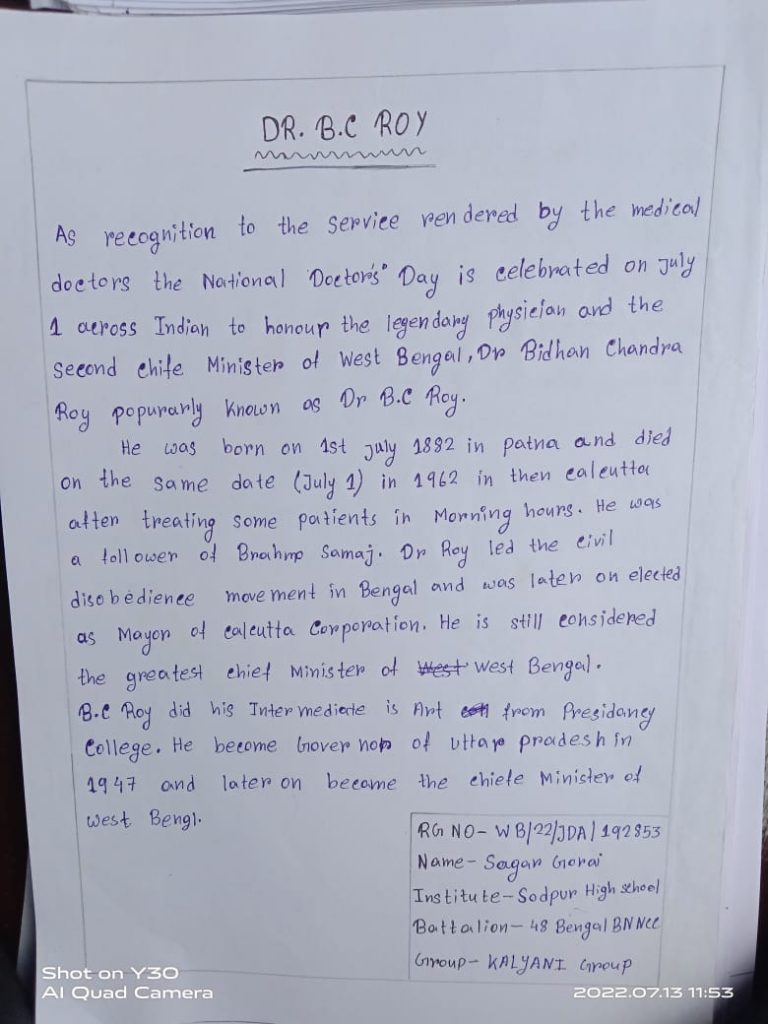 DR. B.C ROY
As recognition to the service rendered by the medical
doctors the National Doctor's' Day is celebrated on July
1 across Indian to honour the legendary physician and the
second chife Minister of West Bengal, Dr Bidhan Chandra
Roy popurarly known as Dr B.C Roy.
He was born on 1st july 1882 in patna and died
on the same date (July 1) in 1962 in then calcutta
after treating some patients in Morning hours. He was
a follower of Brahmo Samaj. Dr Roy led the civil
disobedience movement in Bengal and was later on elected
as Mayor of calcutta Corporation. He is still considered
the greatest chief Minister of West West Bengal.
B.C Roy did his Intermediate is Art from Presidancy
College. He become Governor of uttar pradesh in
1947 and later on became the chiefe Minister of
west Bengl.
RG NO- WB/22/JDA/192853
Name- Sagar Gorai
Institute- Sodpur High school
Battalion- 48 Bengal BN NCC
Group- KALYANI Group
Shot on Y30
AI Quad Camera
2022.07.13 11:53